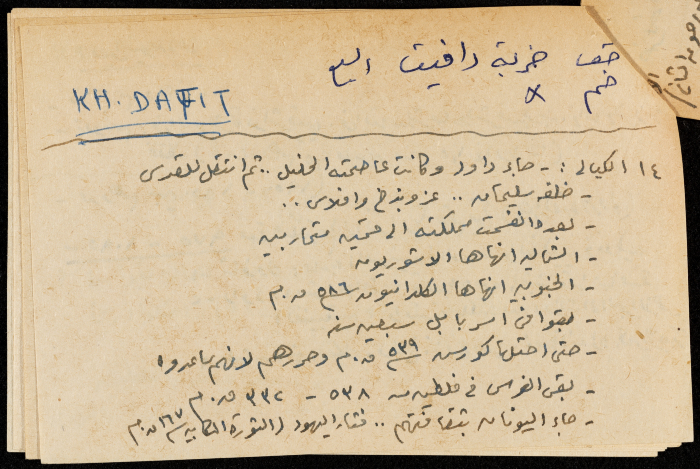 خربة دافيت
KH. DAFIT
١٤ الكيالي: - جاء داود وكانت عاصمته الخليل .. ثم انتقل للقدس
- خلفه سليمان .. عز وبذخ وافلاس ..
- بعده انقسمت مملكته الى قسمين متحاربين
- الشمالية انهاها الاشوريون
- الجنوبية انهاها الكلدانيون ٥٨٦ ق.م
- بقوا في اسر بابل سبعين سنة
- حتى احتلها كورس ٥٣٩ ق.م وحررهم لانهم ساعدوه
- بقي الفرس في فلسطين ٥٣٨ - ٣٣٢ ق.م
- جاء اليونان بثقافتهم .. فثار اليهود (الثورة المكابية ١٦٧ ق.م